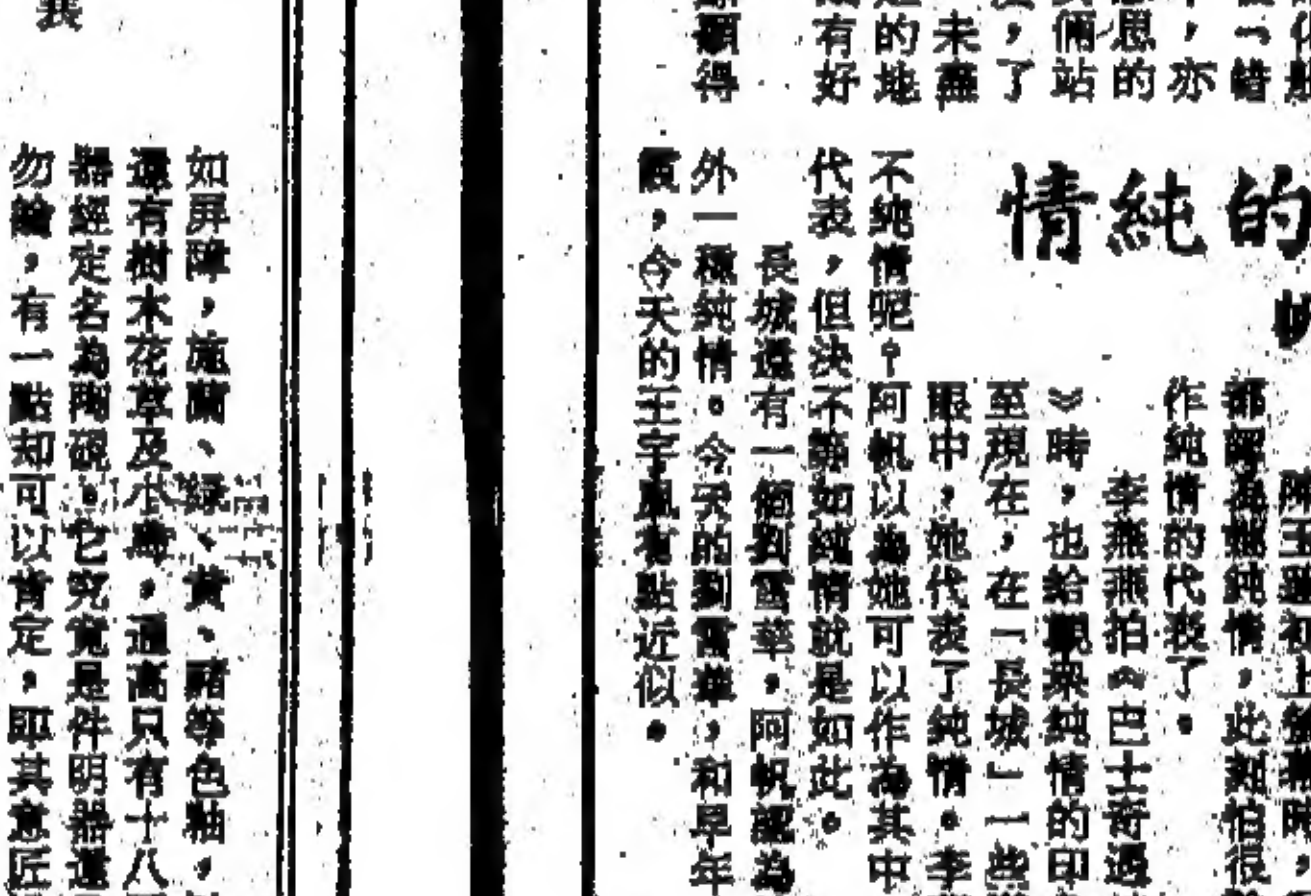 化
錯
，亦
思的
倆站
，了
未盡
的地
有好
顯得
的純情
陳玉蓮初上螢幕時，
純情，此刻怕很
作純情的代表了。
李燕燕拍《巴士奇遇
》時，也給觀眾純情的印
至現在，在「長城」一些
眼中，她代表了純情。李
不純情呢？阿帆以為她可以作為其中
代表，但決不等如純情就是如此。
長城還有一個劉雪華，阿帆認為
外一種純情。今天的劉雪華，和早年
霞，今天的王宇鳳有點近似。
如屏障，施藍、綠、黃、赭等色釉，
還有樹木花草及小鳥，通高只有十八
器經定名為陶硯。它究竟是件明器還
勿論，有一點却可以肯定，即其意匠